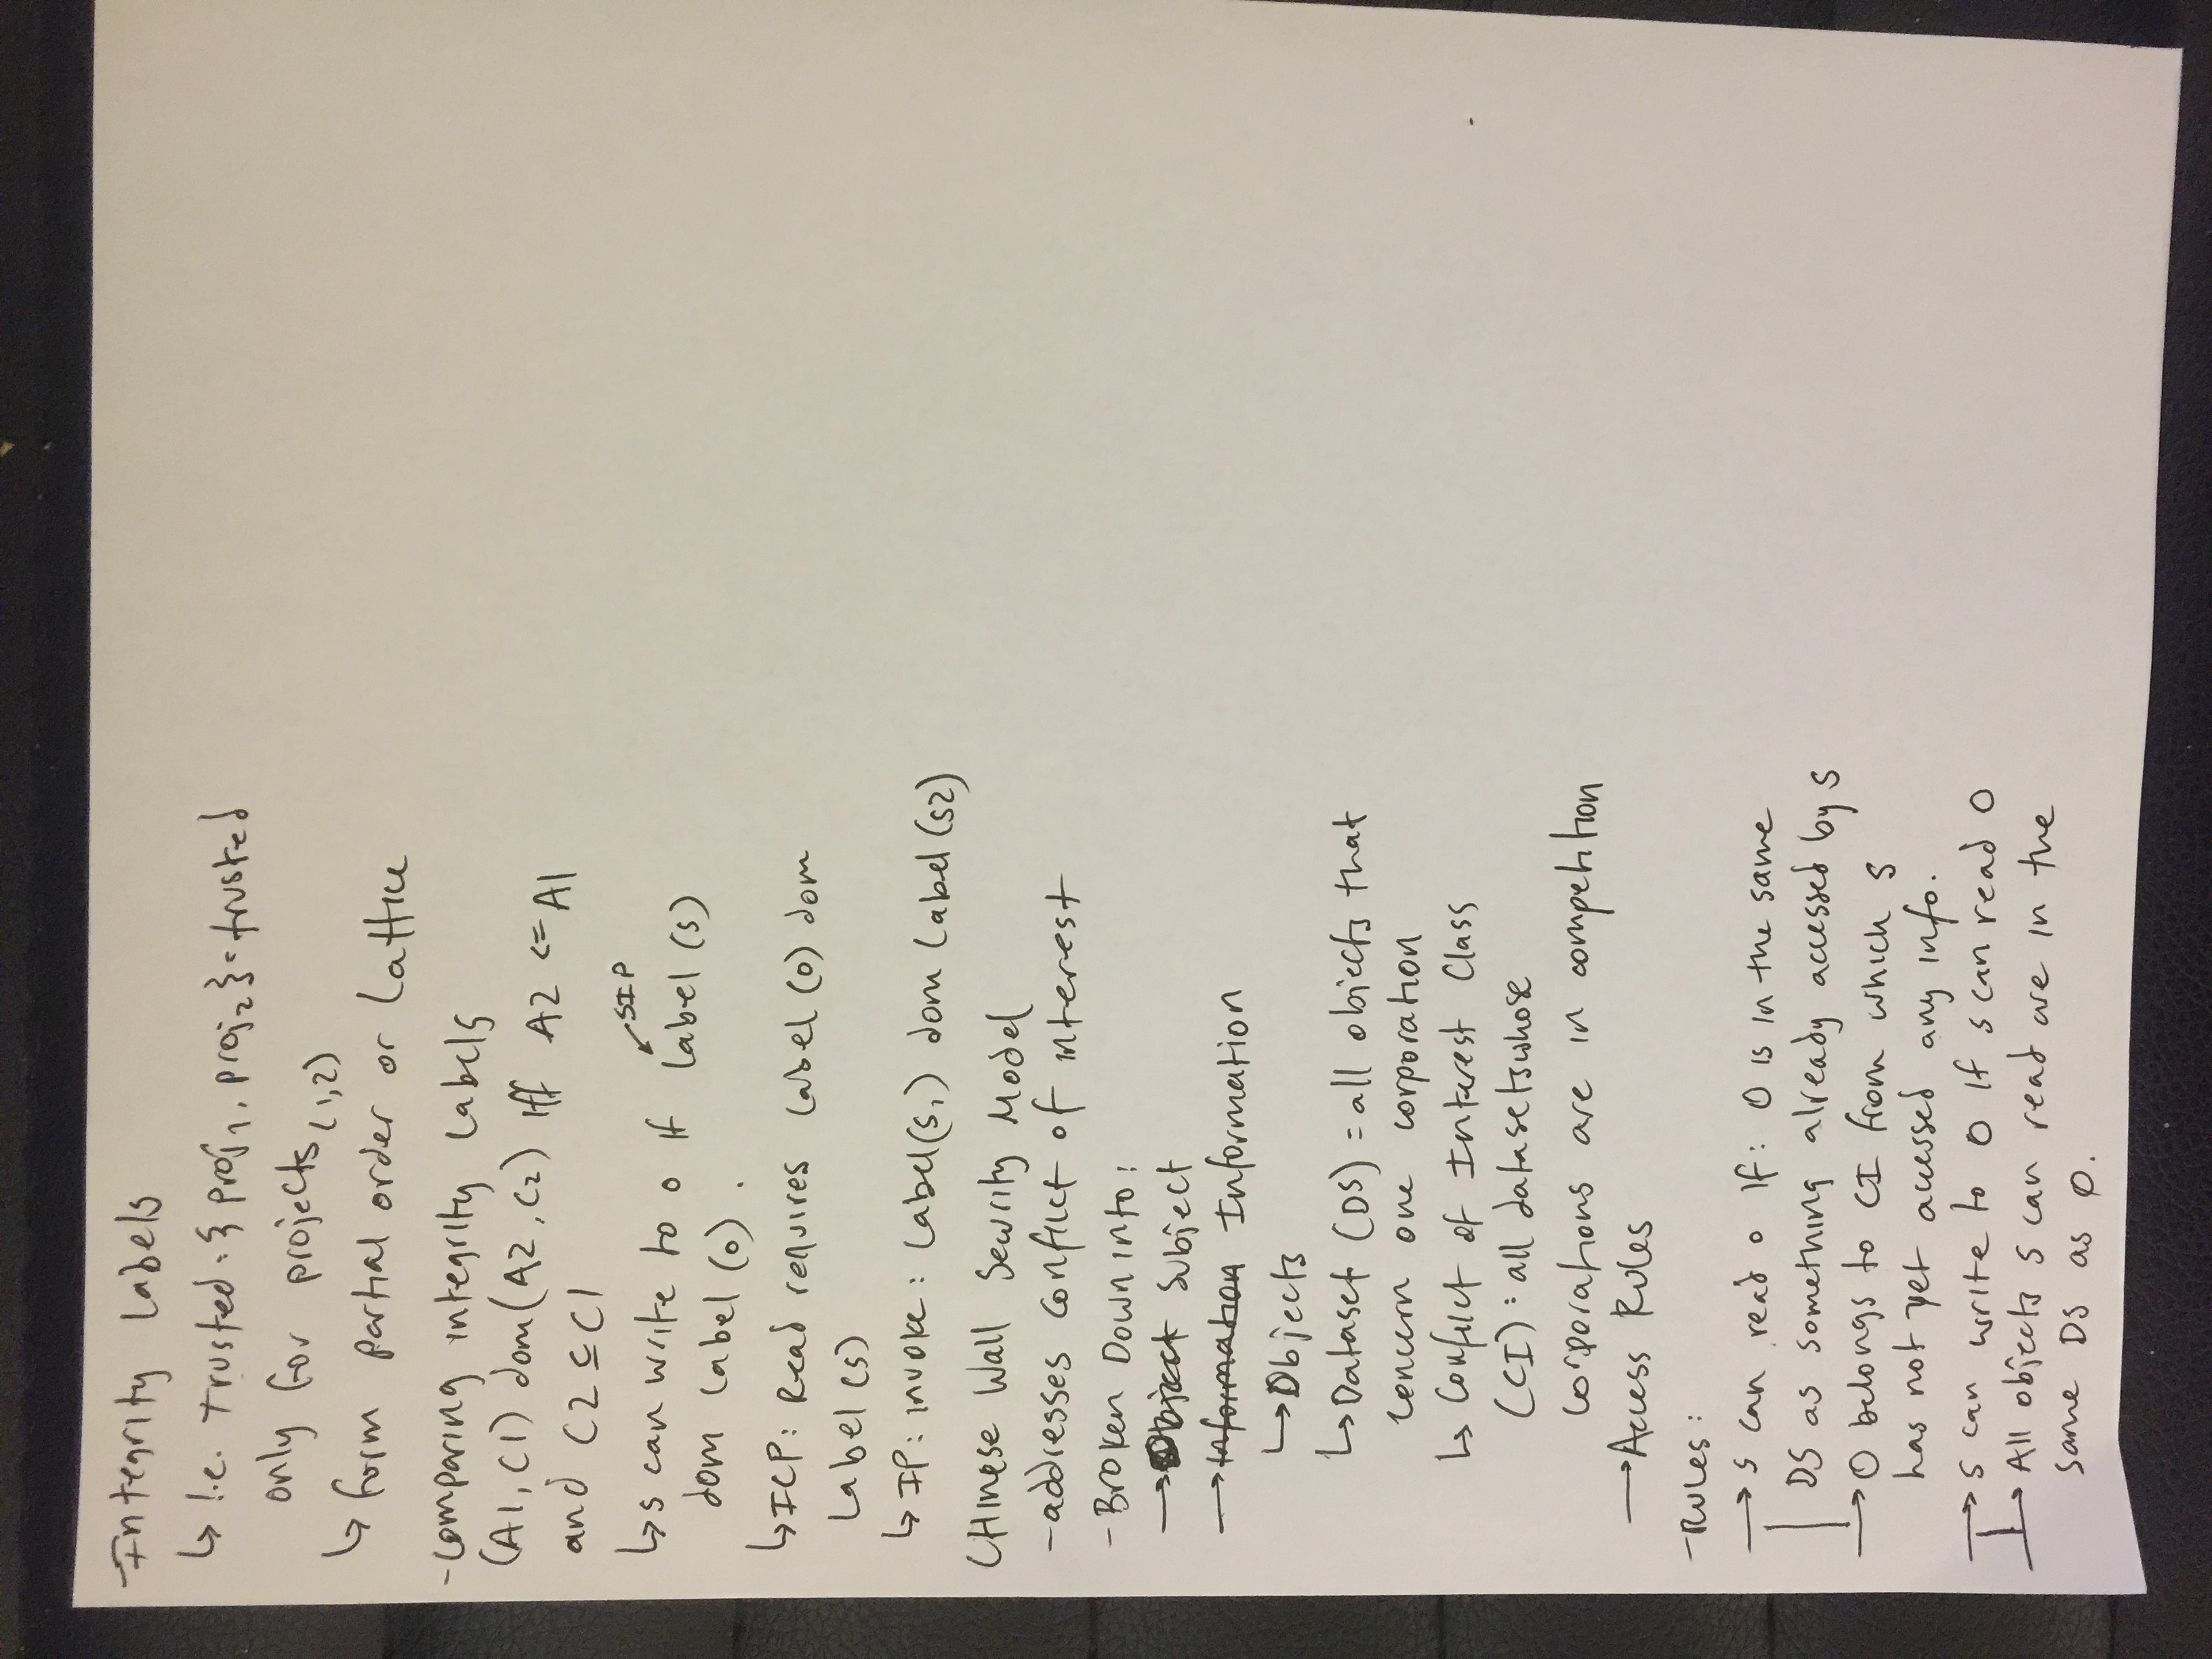 -Integrity Labels
↳ I.e. Trusted: {proj1, proj2} = trusted
only for projects(1,2)
↳ form partial order or Lattice
-comparing integrity Labels
(A1, C1) dom (A2, C2) iff A2 <= A1
and C2 ⊆ C1
SIP
↳ s can write to o if label (s)
dom label (o).
↳ ICP: Read requires label (o) dom
Label (s)
↳ IP: invoke: Label(s1) dom Label (s2)
CHinese Wall Security Model
-addresses conflict of interest
-Broken Down into:
→ Object Subject
→ Information Information
↳ Objects
↳ Dataset (DS) = all objects that
concern one corporation
↳ Conflict of Interest Class
(CI): all datasets whose
corporations are in competition
→ Access Rules
-Rules:
→ s can read o If: O is in the same
DS as something already accessed by s
→ O belongs to CI from which s
has not yet accessed any info.
→ s can write to O If s can read O
→ All objects s can read are in the
same DS as O.